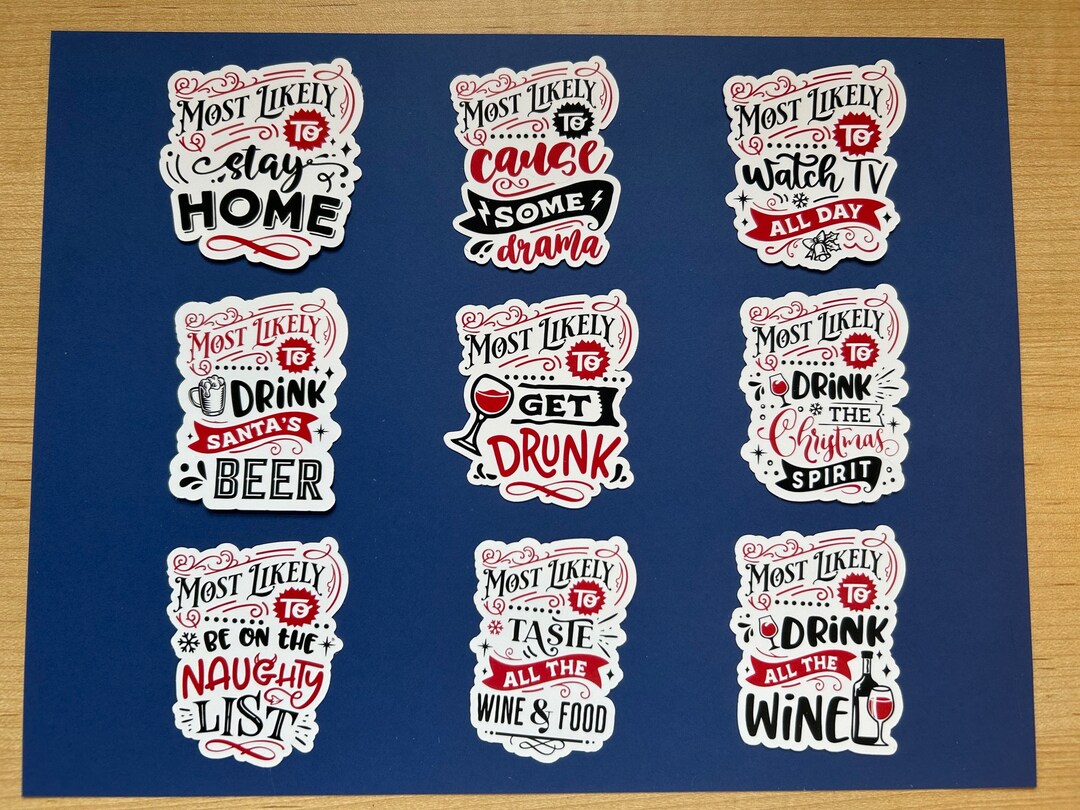 MOST LIKELY
TO
stay
HOME
MOST LIKELY
TO
cause
SOME
drama
MOST LIKELY
TO
watch TV
ALL DAY
MOST LIKELY
TO
DRINK
SANTA'S
BEER
MOST LIKELY
TO
GET
DRUNK
MOST LIKELY
TO
DRINK
THE
Christmas
SPIRIT
MOST LIKELY
TO
BE ON the
NAUGHTY
LIST
MOST LIKELY
TO
TASTE
ALL THE
WINE & FOOD
MOST LIKELY
TO
DRiNK
ALL THE
WiNE